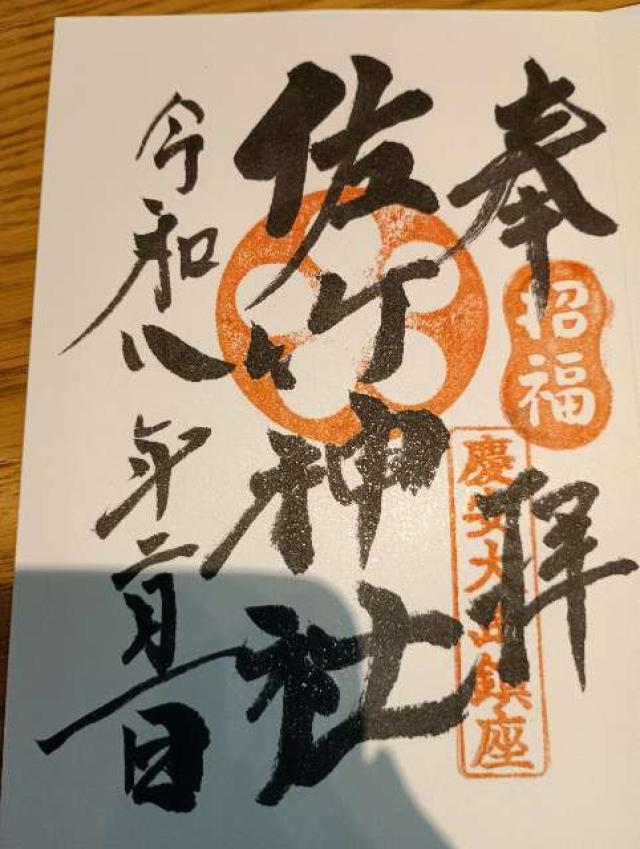 奉拝
招福
慶安大山鎮座
佐竹神社
令和八年二月 日